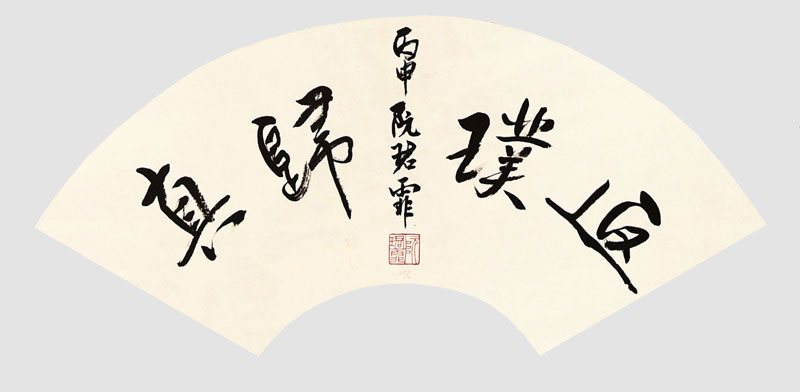 返璞歸真
丙申 阮珺霏